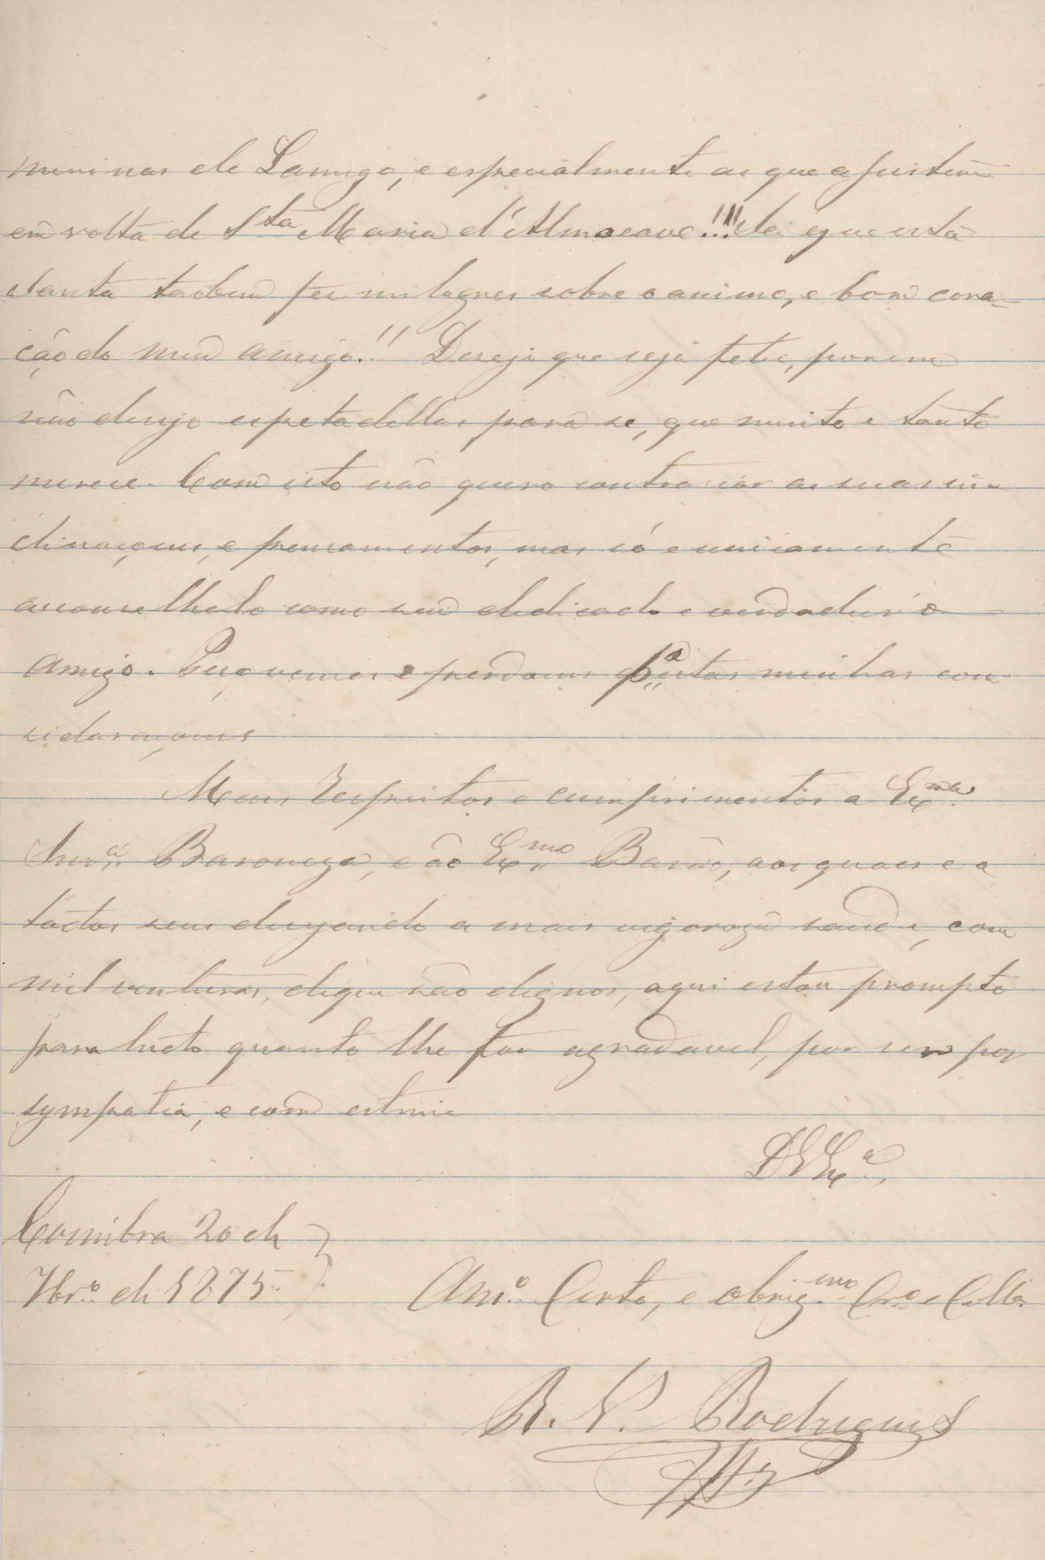 meninas de Lamego, e especialmente as que assistem
em volta de S.ta Maria d'Almacave!!!! Sei que esta
Santa tãobem fez milagres sobre o animo, e bom cora-
ção do meu amigo!! Desejo que seja feliz, porem
não desejo espetadellas para se, que muito e tanto
merece. Com isto não quero contrariar as suas in-
clinaçoens, e pensamentos, mas só e unicamente
aconselhalo como seu dedicado e verdadeiro
Amigo. Peço venia e perdoens p.ª estas minhas con
sidaraçoens
Meus Respeitos e cumprimentos a Ex.ma
Snr.ª Baroneza, e ão Ex.mo Barão, aos quaes e a
todos seus desejando a mais vigoroza saude, com
mil venturas, deque são dignos, aqui estou prompto
para tudo quanto lhe for agradavel, por ser por
sympatia, e com estima
D V Ex.ª
Coimbra 20 de
7br.º de 1875
Am.º Certo, e obrig.mo Cr.º e Coll.
R. N. Rodrigues